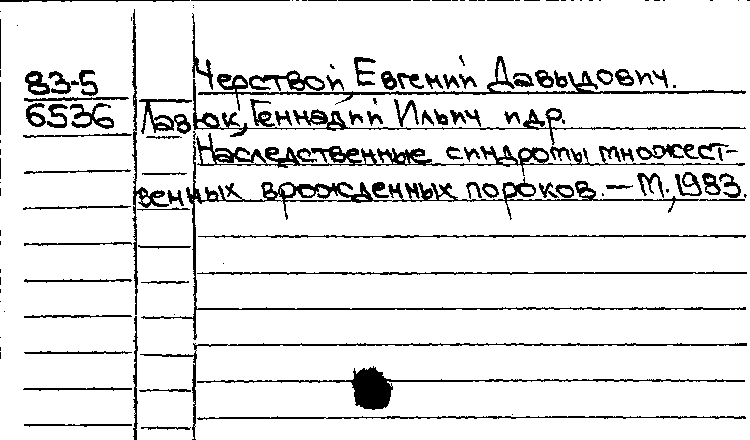 83-5 Черствой, Евгений Давыдович.
6536 Лазюк, Геннадий Ильич и др.
Наследственные синдромы множест-
венных врожденных пороков. — М., 1983.